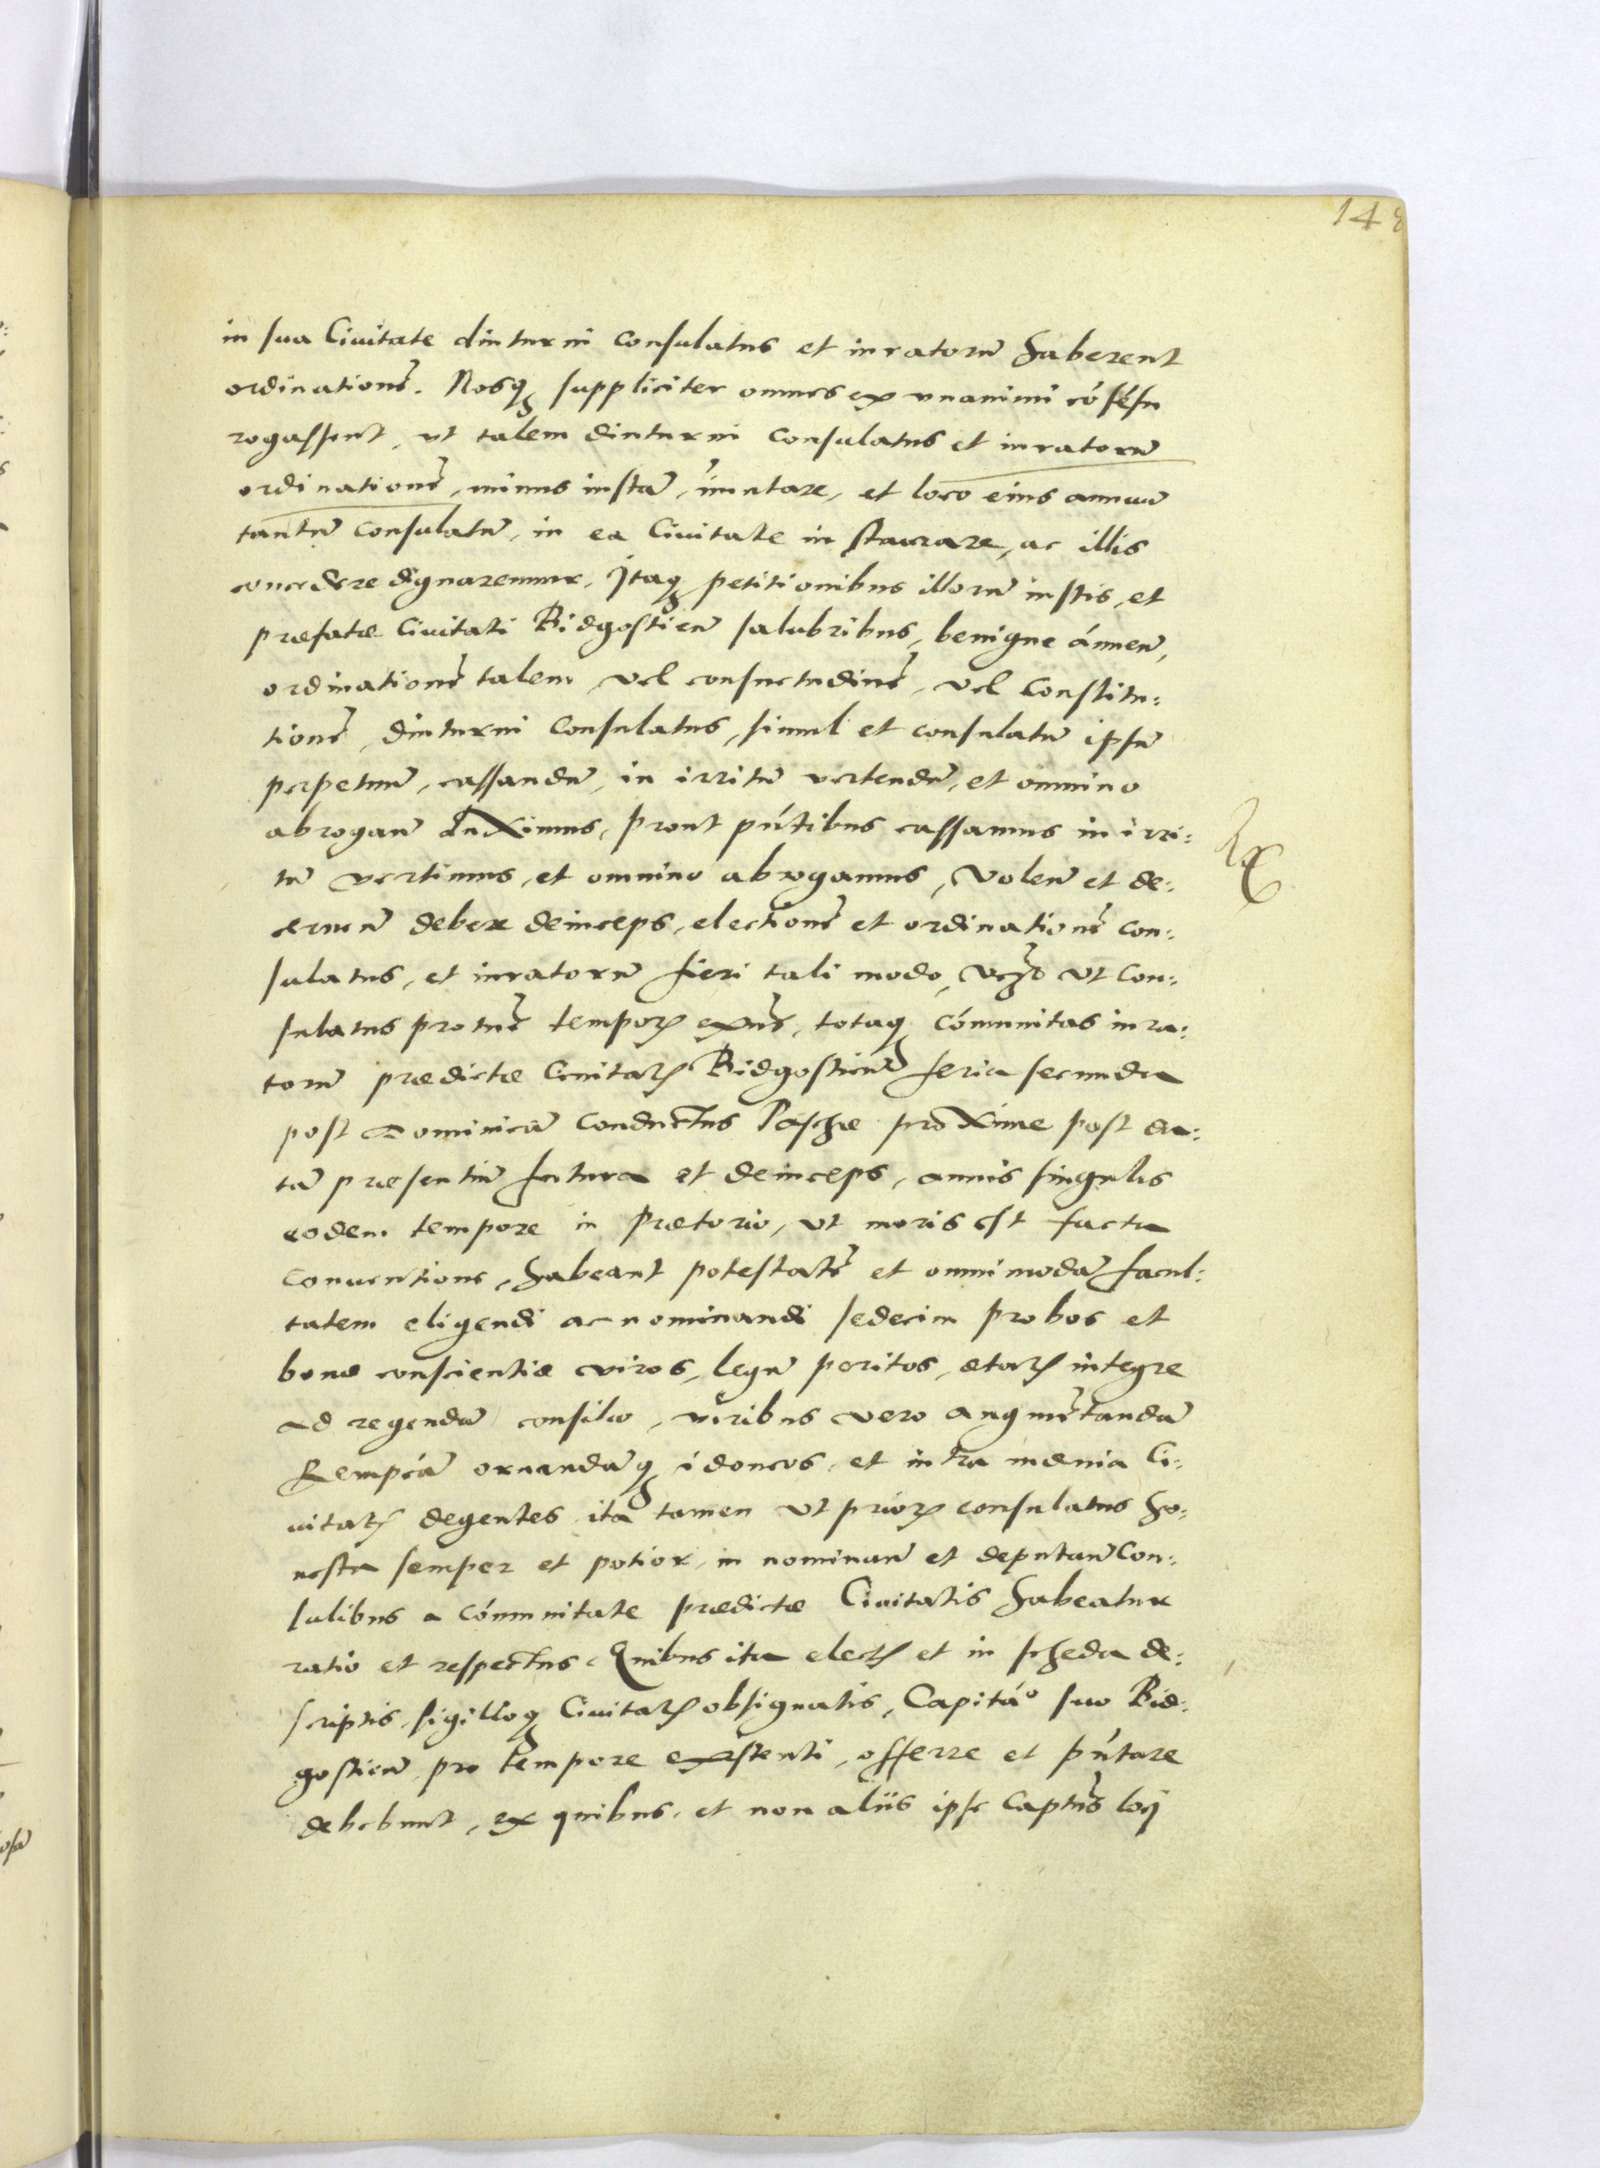 148
in sua Ciuitate diuturni Consulatus et iuratorũ haberent
ordinationẽ. Nosq₃ suppliciter omnes ex unanimi cõsẽsu
rogassent, ut talem diuturni Consulatus et iuratorũ
ordinationẽ, minus iustã, im̃utare, et loco eius annuũ
tantũ consulatũ, in ea Ciuitate instaurare, ac illis
concedere dignaremur. Itaq₃ petitionibus illorũ iustis, et
præfatæ Ciuitati Bidgostieñ salubribus, benigne ánnueñ,
ordinationẽ talem vel consuetudinẽ, vel Constitu:
tionẽ, diuturni Consulatus, simul et consulatũ ipsũ
perpetuũ, cassandũ, in irritũ vertendũ, et omnino
abrogañ duximus, prout pñtibus cassamus in irri:
tũ vertimus, et omnino abrogamus, Voleñ et de:
cerneñ debere deinceps, electionẽ et ordinationẽ con:
sulatus, et iuratorũ fieri tali modo, vz̃ ut Con:
sulatus protũc temporꝭ exñs, totaq₃ cõmunitas iura:
torũ prædictæ Ciuitatꝭ Bidgostieñ feria secunda
post Dominicã Conductus Paschæ proxime post da:
tã præsentiũ futura et deinceps, annis singulis
eodem tempore in Prætorio, ut moris est facta
Conuentione, habeant potestatẽ et omnimodã facul:
tatem eligendi ac nominandi sedecim probos et
bonæ conscientiæ viros, legũ peritos, ætatꝭ integre
ad regendã consilio, viribus vero augmẽtandã
Rempcã ornandãq₃ idoneos, et intra mænia Ci:
uitatꝭ degentes ita tamen ut priorꝭ consulatus ho:
nesta semper et potior, in nominañ et deputañ Con:
sulibus a Cõmunitate prædictæ Ciuitatis habeatur
ratio et respectus. Quibus ita electꝭ et in scheda de:
scriptis, sigilloq₃ Ciuitatꝭ obsignatis, Capitáº suo Bid:
gostieñ pro tempore existenti, offerre et pñtare
debebunt, ex quibus, et non aliis ipse Captũs locj